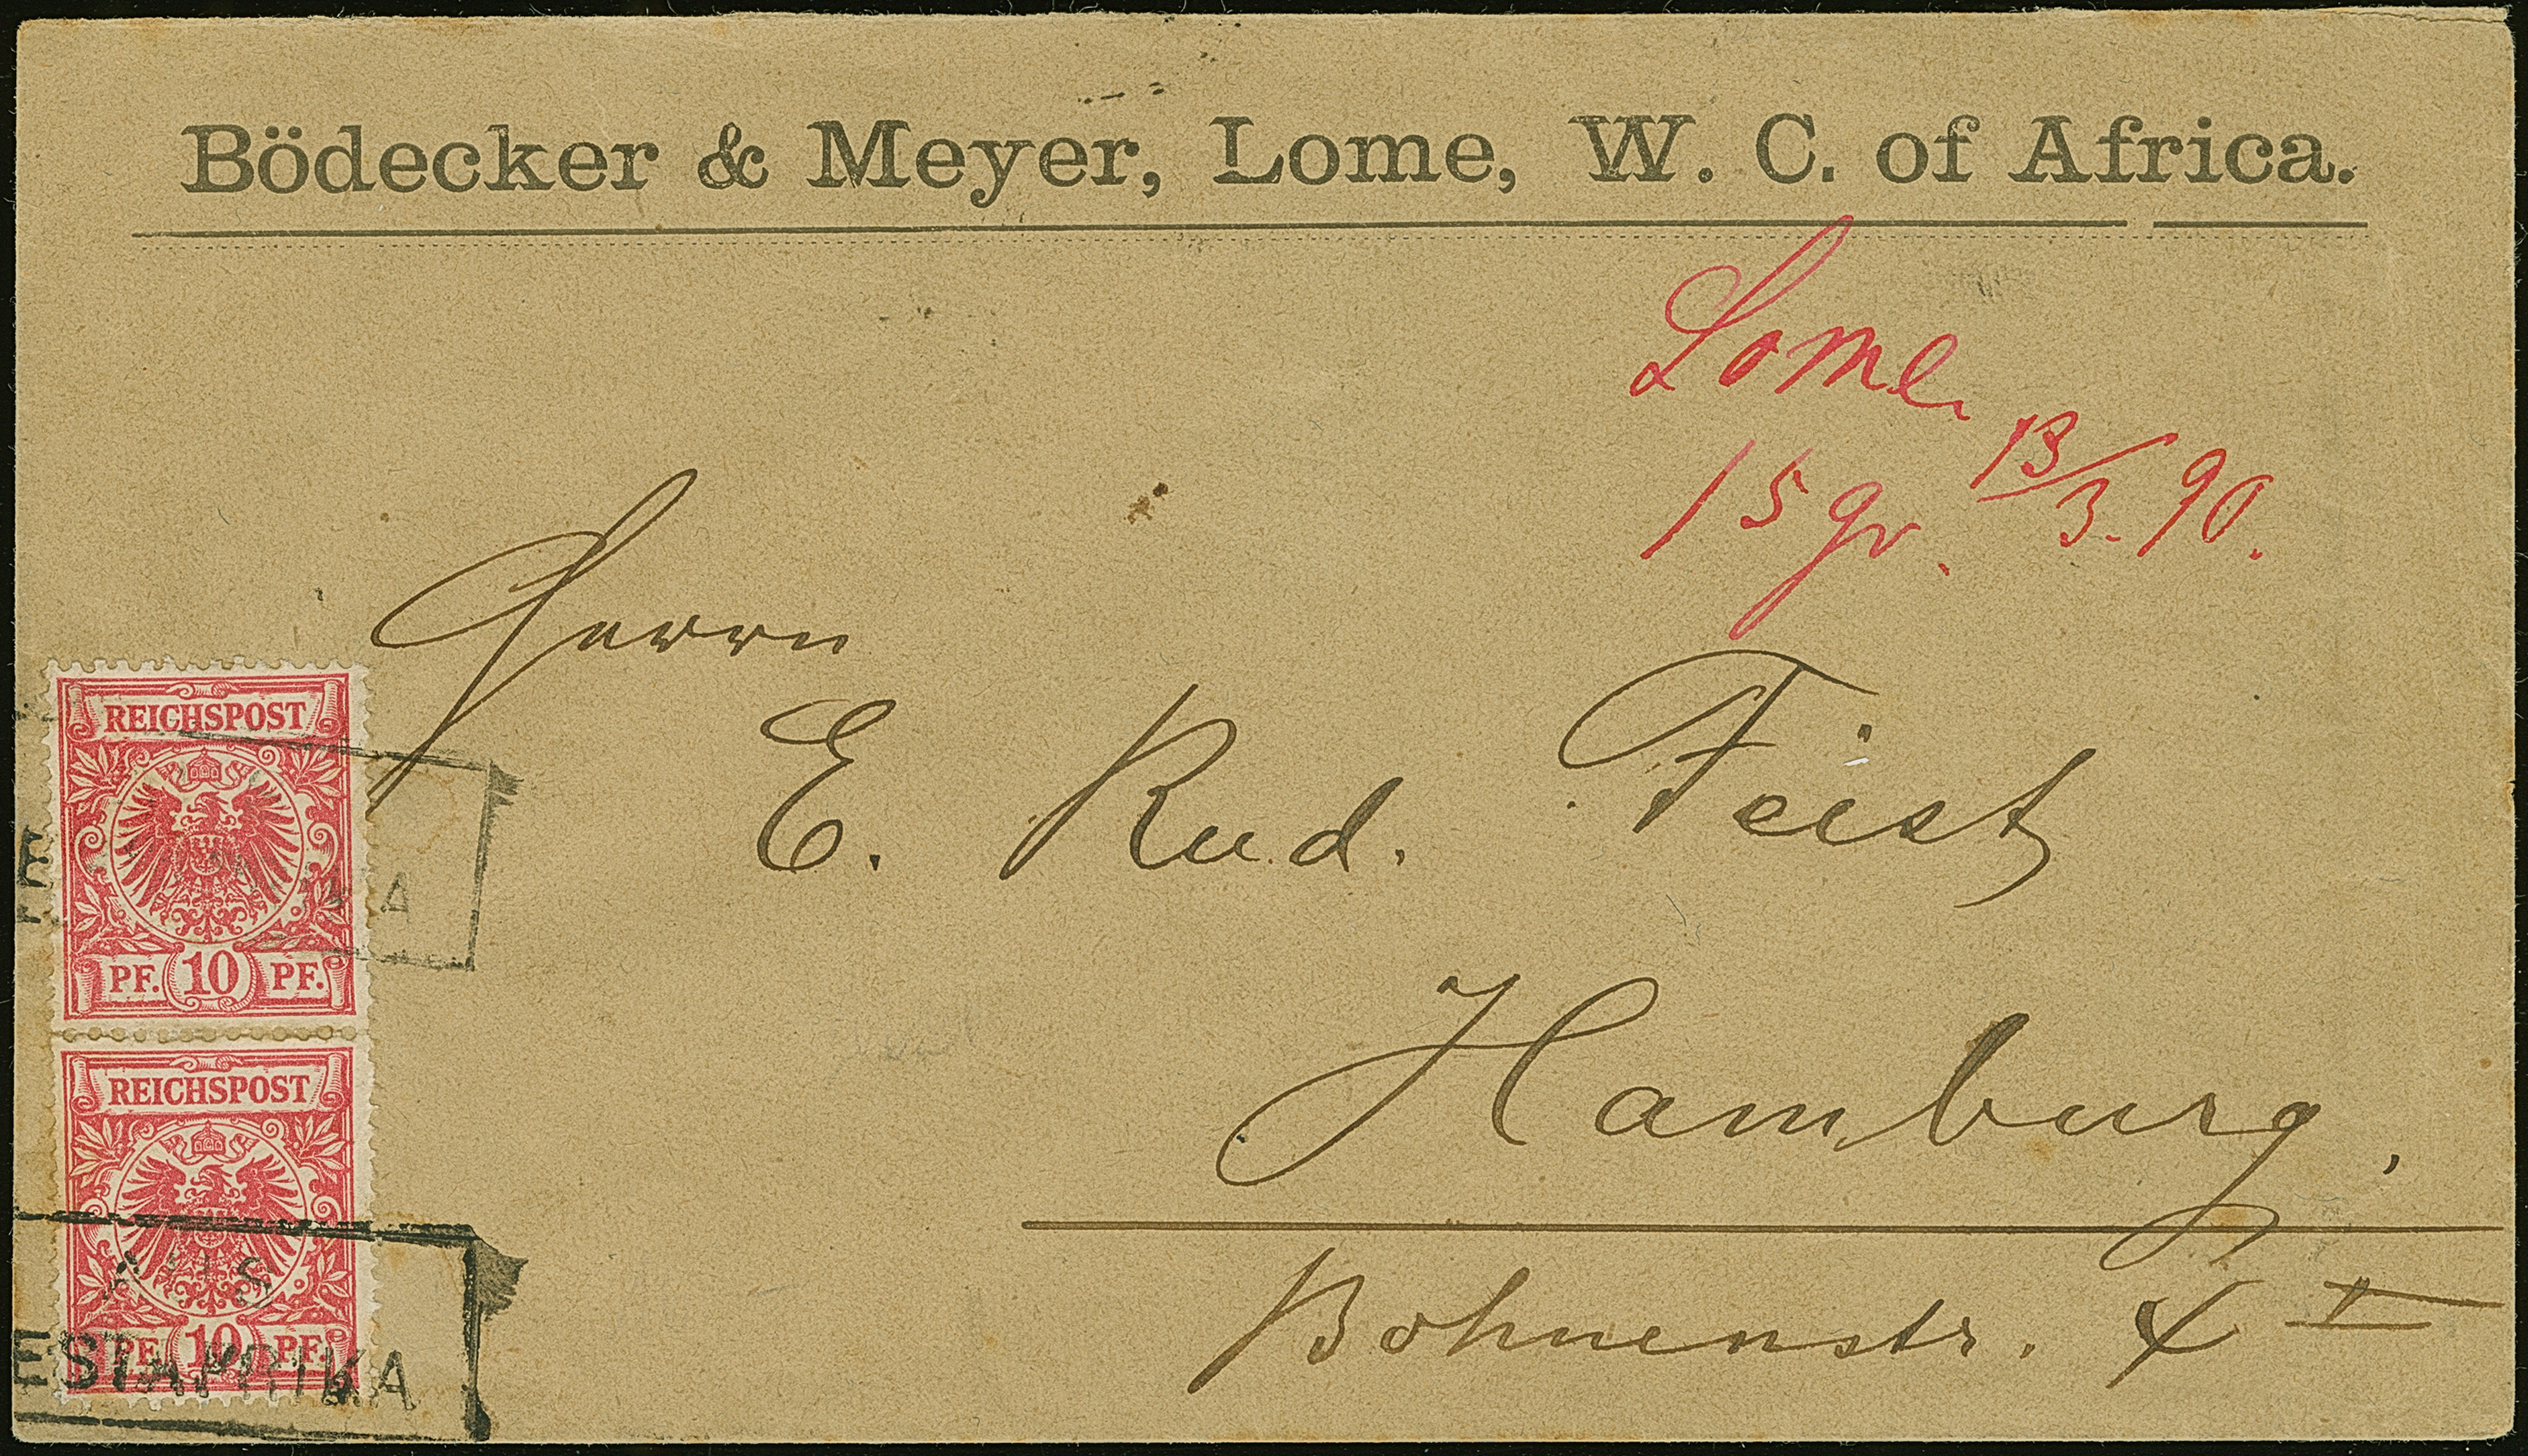 Bödecker & Meyer, Lome, W. C. of Africa.
Lome
13/3. 90.
15 gr.
Herrn
E. Rud. Feist
Hamburg.
Bohnenstr.
REICHSPOST
PF. 10 PF.
REICHSPOST
PF. 10 PF.
AUS
ESTAFRIKA